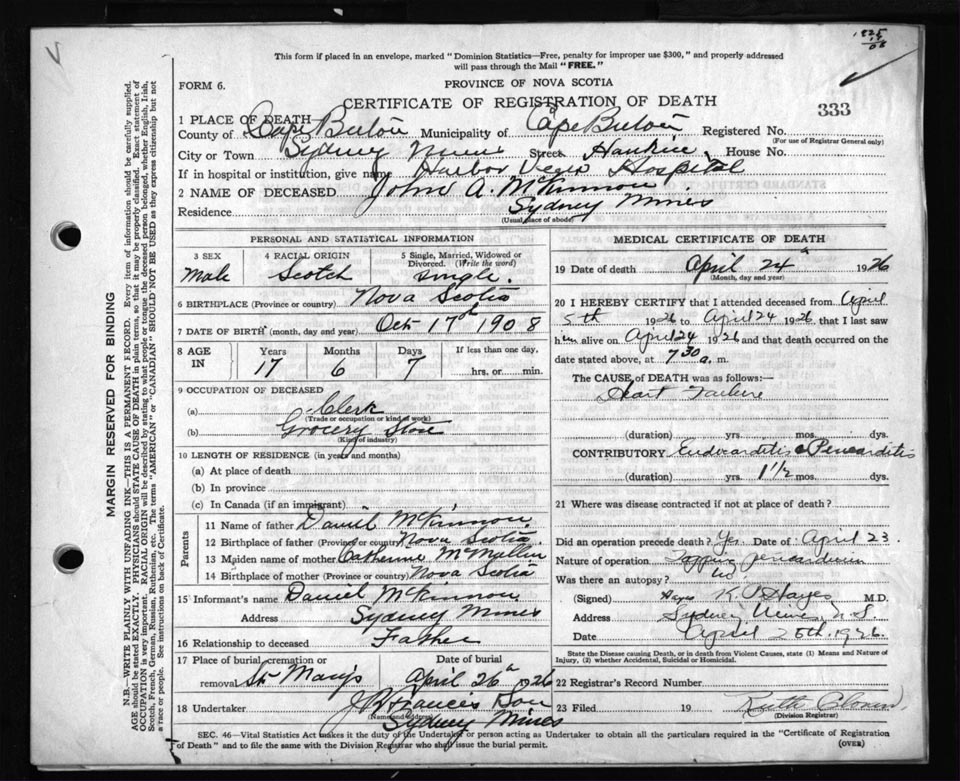 1825
19
08
This form if placed in an envelope, marked "Dominion Statistics—Free, penalty for improper use $300," and properly addressed
will pass through the Mail "FREE."
FORM 6.
PROVINCE OF NOVA SCOTIA
CERTIFICATE OF REGISTRATION OF DEATH
333
1 PLACE OF DEATH
County of Cape Breton Municipality of Cape Breton Registered No.
(For use of Registrar General only)
City or Town Sydney Mines Street House No.
If in hospital or institution, give name Harbor View Hospital
2 NAME OF DECEASED John A. McKinnon
Residence Sydney Mines
(Usual place of abode)
PERSONAL AND STATISTICAL INFORMATION
3 SEX
Male
4 RACIAL ORIGIN
Scotch
5 Single, Married, Widowed or
Divorced. (Write the word)
single.
6 BIRTHPLACE (Province or country) Nova Scotia
7 DATE OF BIRTH (month, day and year) Oct 17th 1908
8 AGE IN
Years Months Days If less than one day,
17 6 7 hrs. or min.
9 OCCUPATION OF DECEASED
(a) Clerk
(Trade or occupation or kind of work)
(b) Grocery Store
(Kind of industry)
10 LENGTH OF RESIDENCE (in years and months)
(a) At place of death
(b) In province
(c) In Canada (if an immigrant)
Parents
11 Name of father Daniel McKinnon
12 Birthplace of father (Province or country) Nova Scotia
13 Maiden name of mother Catherine McMullin
14 Birthplace of mother (Province or country) Nova Scotia
15 Informant's name Daniel McKinnon
Address Sydney Mines
16 Relationship to deceased Father
17 Place of burial, cremation or
removal St Mary's
Date of burial
April 26 1926
18 Undertaker J R Francis Son
(Name and address)
Sydney Mines
MEDICAL CERTIFICATE OF DEATH
19 Date of death April 24 1926
(Month, day and year)
20 I HEREBY CERTIFY that I attended deceased from April
5th 1926 to April 24 1926, that I last saw
him alive on April 24 1926 and that death occurred on the
date stated above, at 7 30 a. m.
The CAUSE of DEATH was as follows:
Heart Failure
(duration) yrs. mos. dys.
CONTRIBUTORY Endocarditis & Pericarditis
(duration) yrs. 1 1/2 mos. dys.
21 Where was disease contracted if not at place of death?
Did an operation precede death? Yes Date of April 23.
Nature of operation Tapping pericardium
Was there an autopsy? No
(Signed) K. Hayes M.D.
Address Sydney Mines, N.S
Date April 25th. 1926.
State the Disease causing Death, or in death from Violent Causes, state (1) Means and Nature of
Injury, (2) whether Accidental, Suicidal or Homicidal.
22 Registrar's Record Number
23 Filed 19 Ruth
(Division Registrar)
SEC. 46—Vital Statistics Act makes it the duty of the Undertaker or person acting as Undertaker to obtain all the particulars required in the "Certificate of Registration
of Death" and to file the same with the Division Registrar who shall issue the burial permit.
(OVER)
MARGIN RESERVED FOR BINDING
N.B.—WRITE PLAINLY WITH UNFADING INK—THIS IS A PERMANENT RECORD. Every item of information should be carefully supplied.
AGE should be stated EXACTLY. PHYSICIANS should STATE CAUSE OF DEATH in plain terms, so that it may be properly classified. Exact statement of
OCCUPATION is very important. RACIAL ORIGIN will be described by stating to what people or tongue the deceased person belonged, whether English, Irish,
Scotch, French, German, Russian, Ruthenian, etc. The terms "AMERICAN" or "CANADIAN" SHOULD NOT BE USED as they express citizenship but not
a race or people. See instructions on back of Certificate.